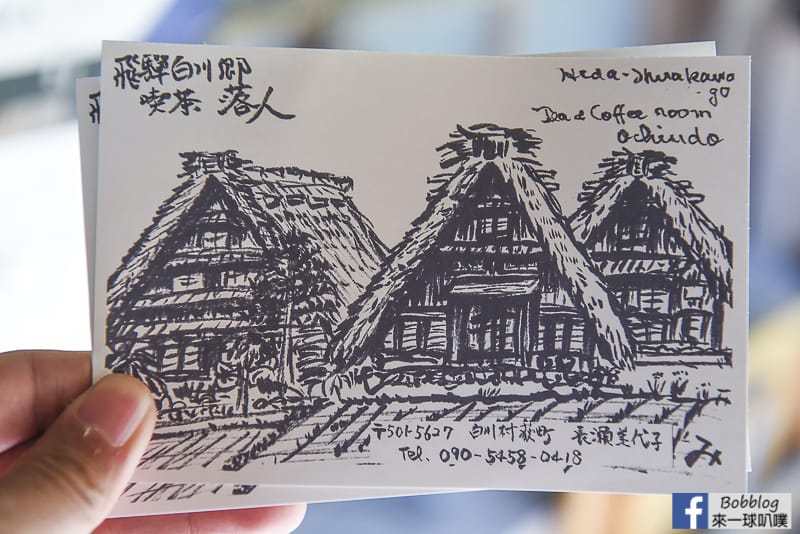 飛騨白川郷
喫茶 落人
Heda-Shirakawa
-go
Tea & Coffee room
ochiudo
〒501-5627 白川村荻町 長瀬美代子
Tel. 090-5458-0418
み
飛
Bobblog
來一球叭噗